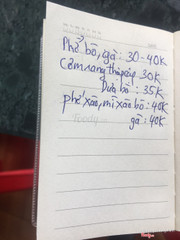 Phở bò, gà : 30 - 40K
Cơm rang thập cẩm 30K
Dưa bò : 35K
phở xào, mì xào bò : 40K
gà : 40K